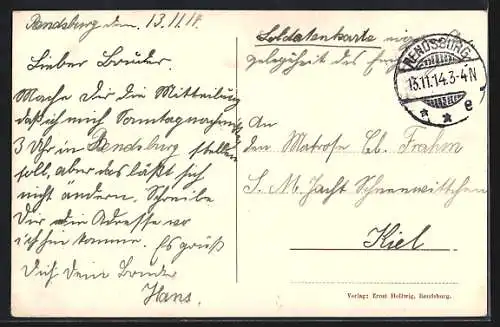 Rendsburg den 13.11.14.
Lieber Bruder.
Mache Dir die Mitteilung
daß ich mich Sonntagnachm.
3 Uhr in Rendsburg stellen
soll, aber das läßt sich
nicht ändern. Schreibe
Dir die Adresse wo
ich hin komme. Es grüßt
Dich dein Bruder
Hans.
Soldatenkarte
gelegenheit des
RENDSBURG
13.11.14.3-4N
* * e
An
den Matrose Eb. Frahm
S. M. Jacht Schneewittchen
Kiel
Verlag: Ernst Hollwig, Rendsburg.